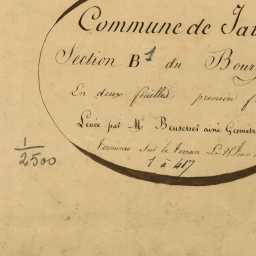 Commune de Jat
Section B1 du Bour
En deux feuilles première f
Levée par Mr Beuscher ainé Géomètr
Terminée sur le Terrain Le
1 à 417
1/2500